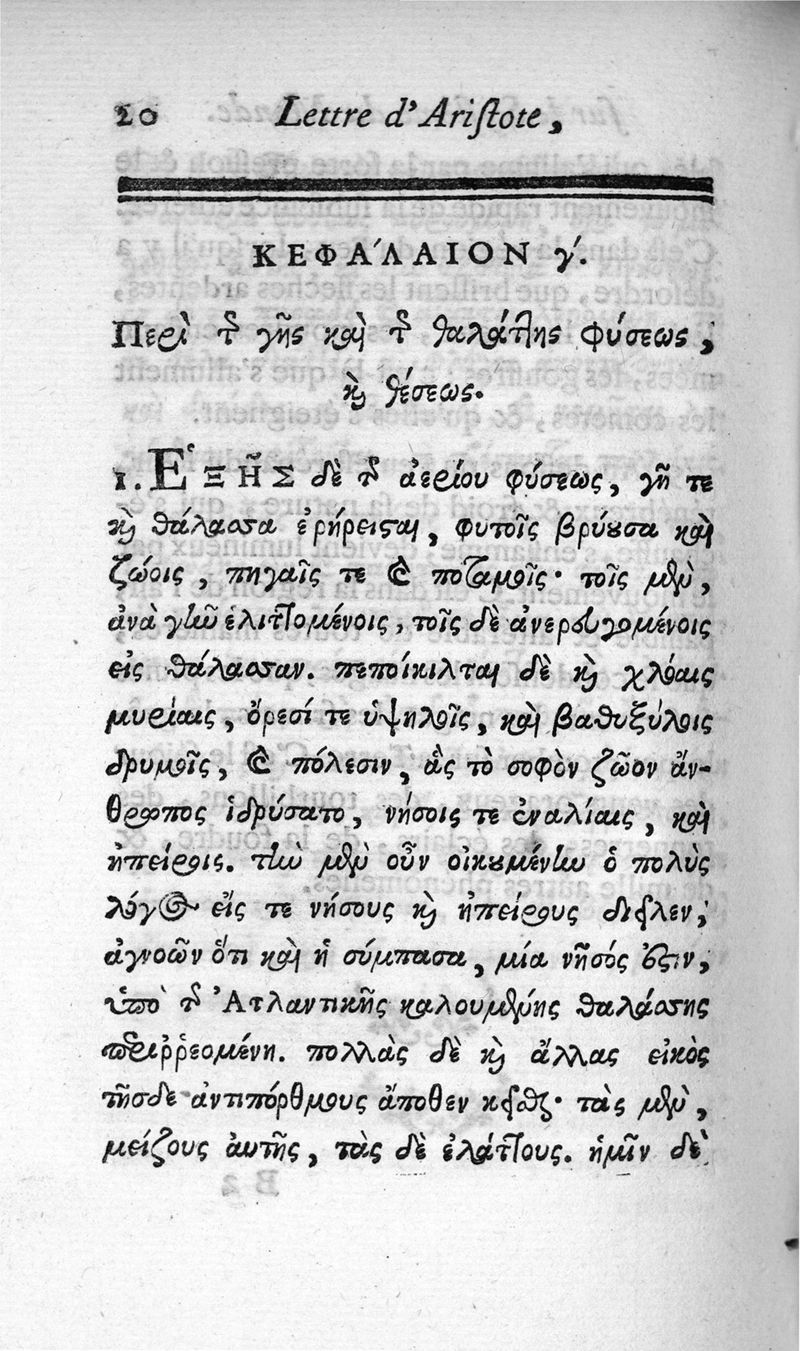 20 Lettre d'Aristote,
ΚΕΦΑ΄ΛΑΙΟΝ γ΄.
Περὶ τῆς γῆς καὶ τῆς θαλάττης φύσεως,
καὶ θέσεως.
1. Ἑξῆς δὲ τῆς ἀερίου φύσεως, γῆ τε
καὶ θάλασσα ἐρήρεισται, φυτοῖς βρύουσα καὶ
ζώοις, πηγαῖς τε καὶ ποταμοῖς· τοῖς μὲν,
ἀνὰ γῆν ἑλιττομένοις, τοῖς δὲ ἀνερευγομένοις
εἰς θάλασσαν. πεποίκιλται δὲ καὶ χλόαις
μυρίαις, ὄρεσί τε ὑψηλοῖς, καὶ βαθυξύλοις
δρυμοῖς, καὶ πόλεσιν, ἃς τὸ σοφὸν ζῶον ἄν-
θρωπος ἱδρύσατο, νήσοις τε ἐναλίαις, καὶ
ἠπείροις. τὴν μὲν οὖν οἰκουμένην ὁ πολὺς
λόγος εἴς τε νήσους καὶ ἠπείρους διεῖλεν,
ἀγνοῶν ὅτι καὶ ἡ σύμπασα, μία νῆσός ἐστιν,
ὑπὸ τῆς Ἀτλαντικῆς καλουμένης θαλάσσης
περιῤῥεομένη. πολλὰς δὲ καὶ ἄλλας εἰκὸς
τῆσδε ἀντιπόρθμους ἄποθεν κεῖσθαι· τὰς μὲν,
μείζους αὐτῆς, τὰς δὲ ἐλάττους. ἡμῖν δὲ